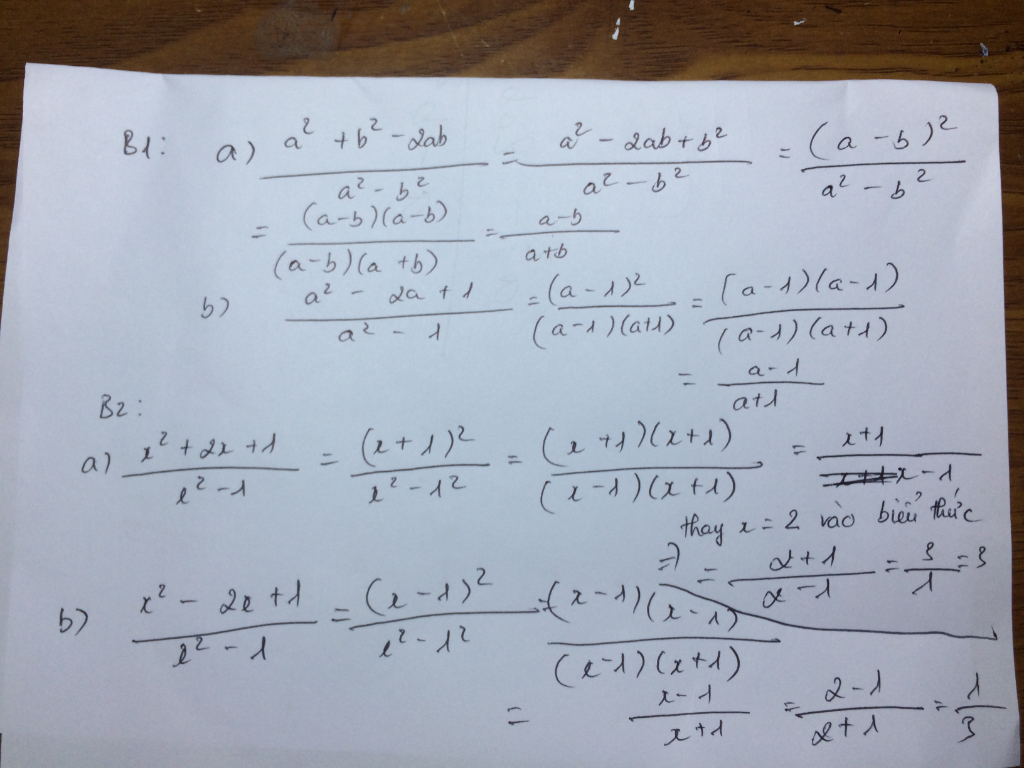 B1: a) (a² + b² - 2ab)/(a² - b²) = (a² - 2ab + b²)/(a² - b²) = (a - b)²/(a² - b²)
= (a-b)(a-b)/(a-b)(a+b) = (a-b)/(a+b)
b) (a² - 2a + 1)/(a² - 1) = (a - 1)²/(a-1)(a+1) = (a-1)(a-1)/(a-1)(a+1)
= (a-1)/(a+1)
B2:
a) (x² + 2x + 1)/(x² - 1) = (x + 1)²/(x² - 1²) = (x + 1)(x + 1)/(x - 1)(x + 1) = (x+1)/(x - 1)
thay x = 2 vào biểu thức
=> = (2+1)/(2-1) = 3/1 = 3
b) (x² - 2x + 1)/(x² - 1) = (x - 1)²/(x² - 1²) = (x - 1)(x - 1)/(x - 1)(x + 1)
= (x-1)/(x+1) = (2-1)/(2+1) = 1/3